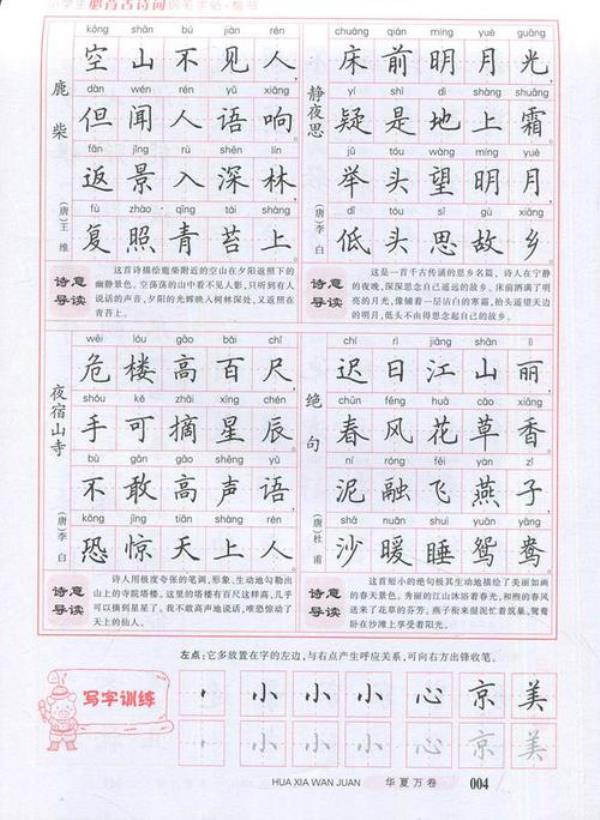 小学生必背古诗词钢笔字帖·楷书
鹿柴
(唐)王维
kōng shān bú jiàn rén
空山不见人，
dàn wén rén yǔ xiǎng
但闻人语响。
fǎn jǐng rù shēn lín
返景入深林，
fù zhào qīng tái shàng
复照青苔上。
诗意导读
这首诗描绘鹿柴附近的空山在夕阳返照下的
幽静景色。空荡荡的山中看不见人影，只听到有人
说话的声音，夕阳的光辉映入树林深处，又返照在
青苔上。
静夜思
(唐)李白
chuáng qián míng yuè guāng
床前明月光，
yí shì dì shàng shuāng
疑是地上霜。
jǔ tóu wàng míng yuè
举头望明月，
dī tóu sī gù xiāng
低头思故乡。
诗意导读
这是一首千古传诵的思乡名篇。诗人在宁静
的夜晚，深深思念自己遥远的故乡。床前洒满了明
亮的月光，像铺着一层洁白的寒霜，抬头遥望天边
的明月，低头不由得思念起自己的故乡。
夜宿山寺
(唐)李白
wēi lóu gāo bǎi chǐ
危楼高百尺，
shǒu kě zhāi xīng chén
手可摘星辰。
bù gǎn gāo shēng yǔ
不敢高声语，
kǒng jīng tiān shàng rén
恐惊天上人。
诗意导读
诗人用极度夸张的笔调，形象、生动地勾勒出
山上的寺院塔楼。这里的塔楼有百尺这样高，几乎
可以摘到星星了。我不敢高声地说话，唯恐惊动了
天上的仙人。
绝句
(唐)杜甫
chí rì jiāng shān lì
迟日江山丽，
chūn fēng huā cǎo xiāng
春风花草香。
ní róng fēi yàn zǐ
泥融飞燕子，
shā nuǎn shuì yuān yāng
沙暖睡鸳鸯。
诗意导读
这首短小的绝句极其生动地描绘了美丽如画
的春天景色。秀丽的江山沐浴着春光，和煦的春风
送来了花草的芬芳。燕子衔来湿泥忙着筑巢，鸳鸯
卧在沙滩上享受着阳光。
左点：它多放置在字的左边，与右点产生呼应关系，可向右方出锋收笔。
写字训练
丶 小 小 小 心 京 美
丶 小 小 小 心 京 美
HUA XIA WAN JUAN 华夏万卷 004